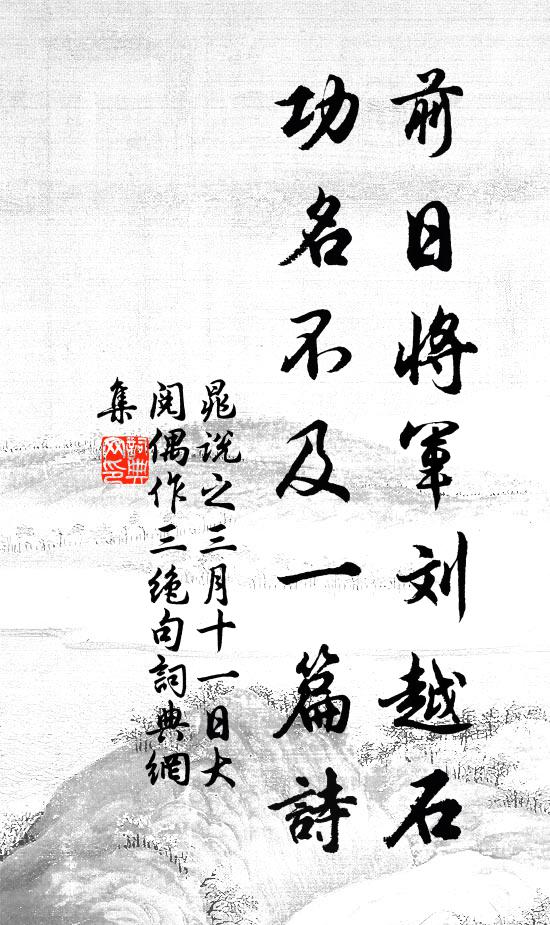 前日将军刘越石
功名不及一篇詩
晁说之三月十一日大
阅偶作三绝句詞典網
集